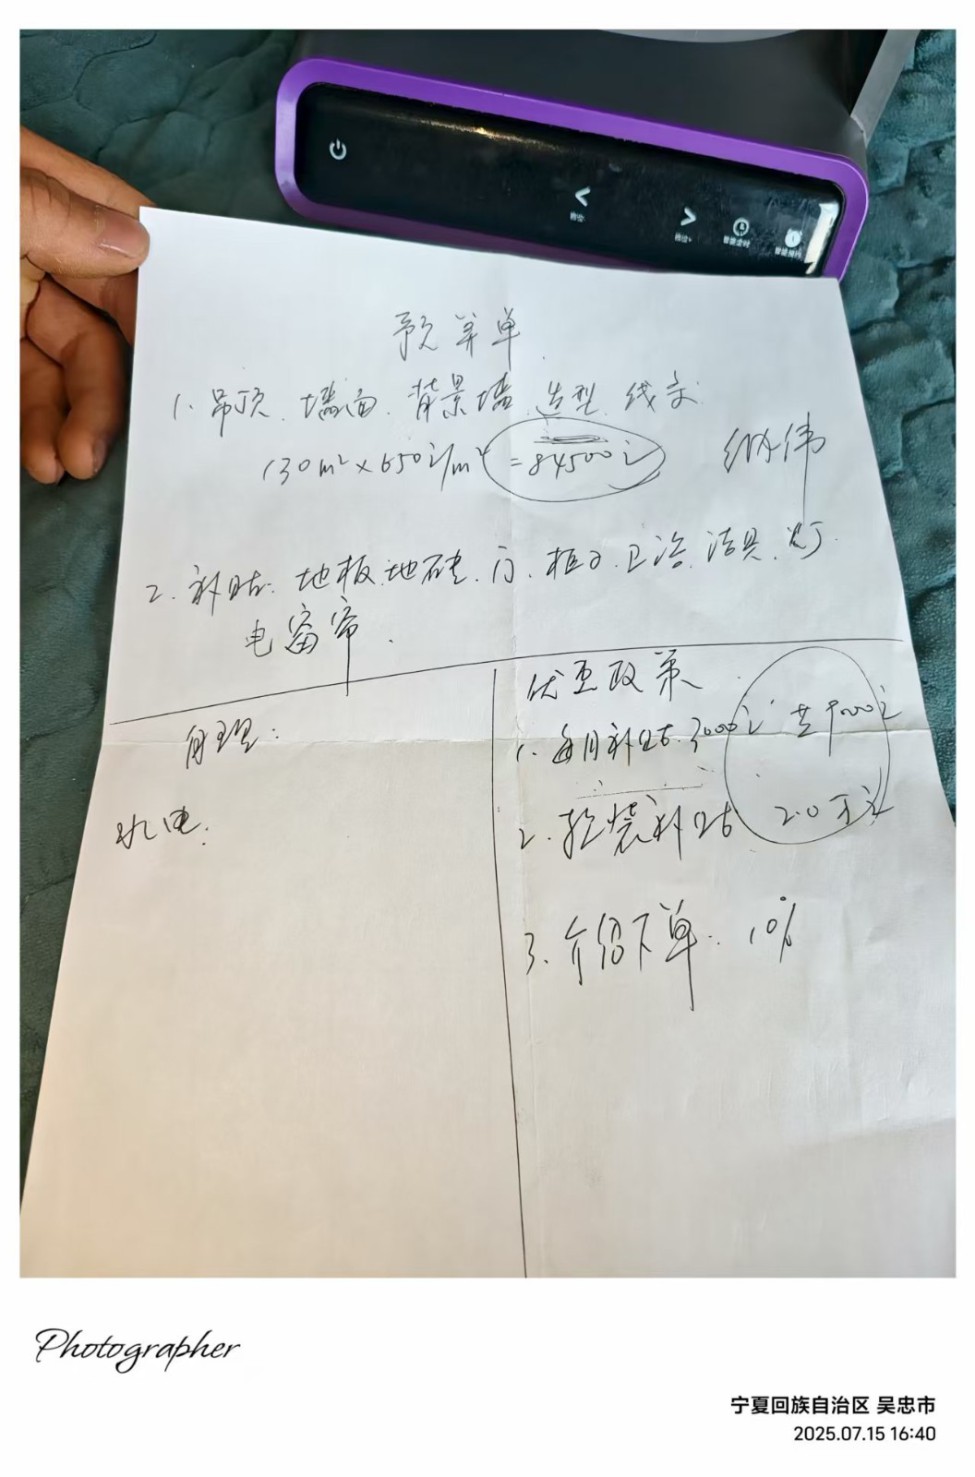 预算单
1. 吊顶、墙面、背景墙、造型、线交
130m²×650元/m² =84500元
纳伟
2. 补贴: 地板.地砖.门.柜子.卫浴.洁具.灯
电窗帘.
自理:
水电.
优惠政策
1. 每月补贴.3000元 共9000元
2. 拉烧补贴 2.0万元
3. 介绍下单. 10%
Photographer
宁夏回族自治区 吴忠市
2025.07.15 16:40